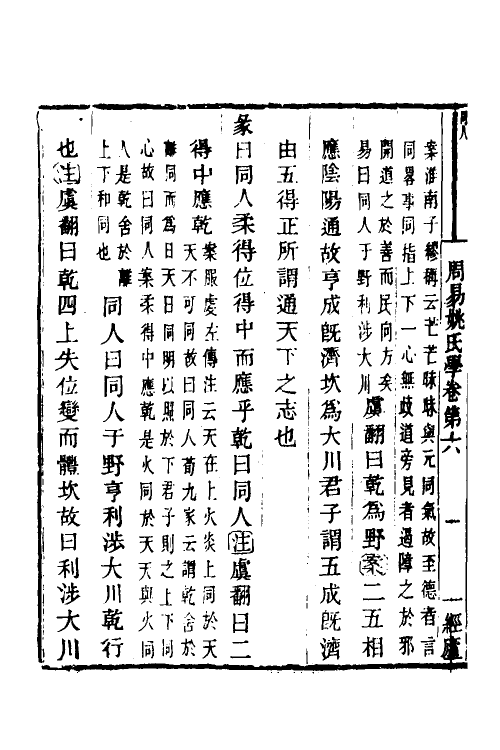 同人
周易姚氏學卷第六
一
一經廬
案淮南子繆稱云芒芒昧昧與元同氣故至德者言
同畧事同指上下一心無歧道旁見者遏障之於邪
開道之於善而民向方矣
易曰同人于野利涉大川
虞翻曰乾爲野案二五相
應陰陽通故亨成旣濟坎爲大川君子謂五成旣濟
由五得正所謂通天下之志也
彖曰同人柔得位得中而應乎乾曰同人注虞翻曰二
得中應乾
案服虔左傳注云天在上火炎上同於天
天不可同故曰同人荀九家云謂乾舍於
離同而爲日天日同明以照於下君子則之上下同
心故曰同人案柔得中應乾是火同於天天與火同
人是乾舍於離
上下和同也
同人曰同人于野亨利涉大川乾行
也注虞翻曰乾四上失位變而體坎故曰利涉大川